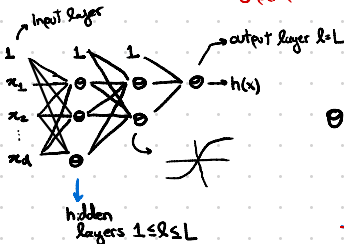 Input layer
output layer l=L
1 1 1
x1 θ θ θ → h(x)
x2 θ θ
⋮
xd θ
θ
hidden
layers 1≤l≤L